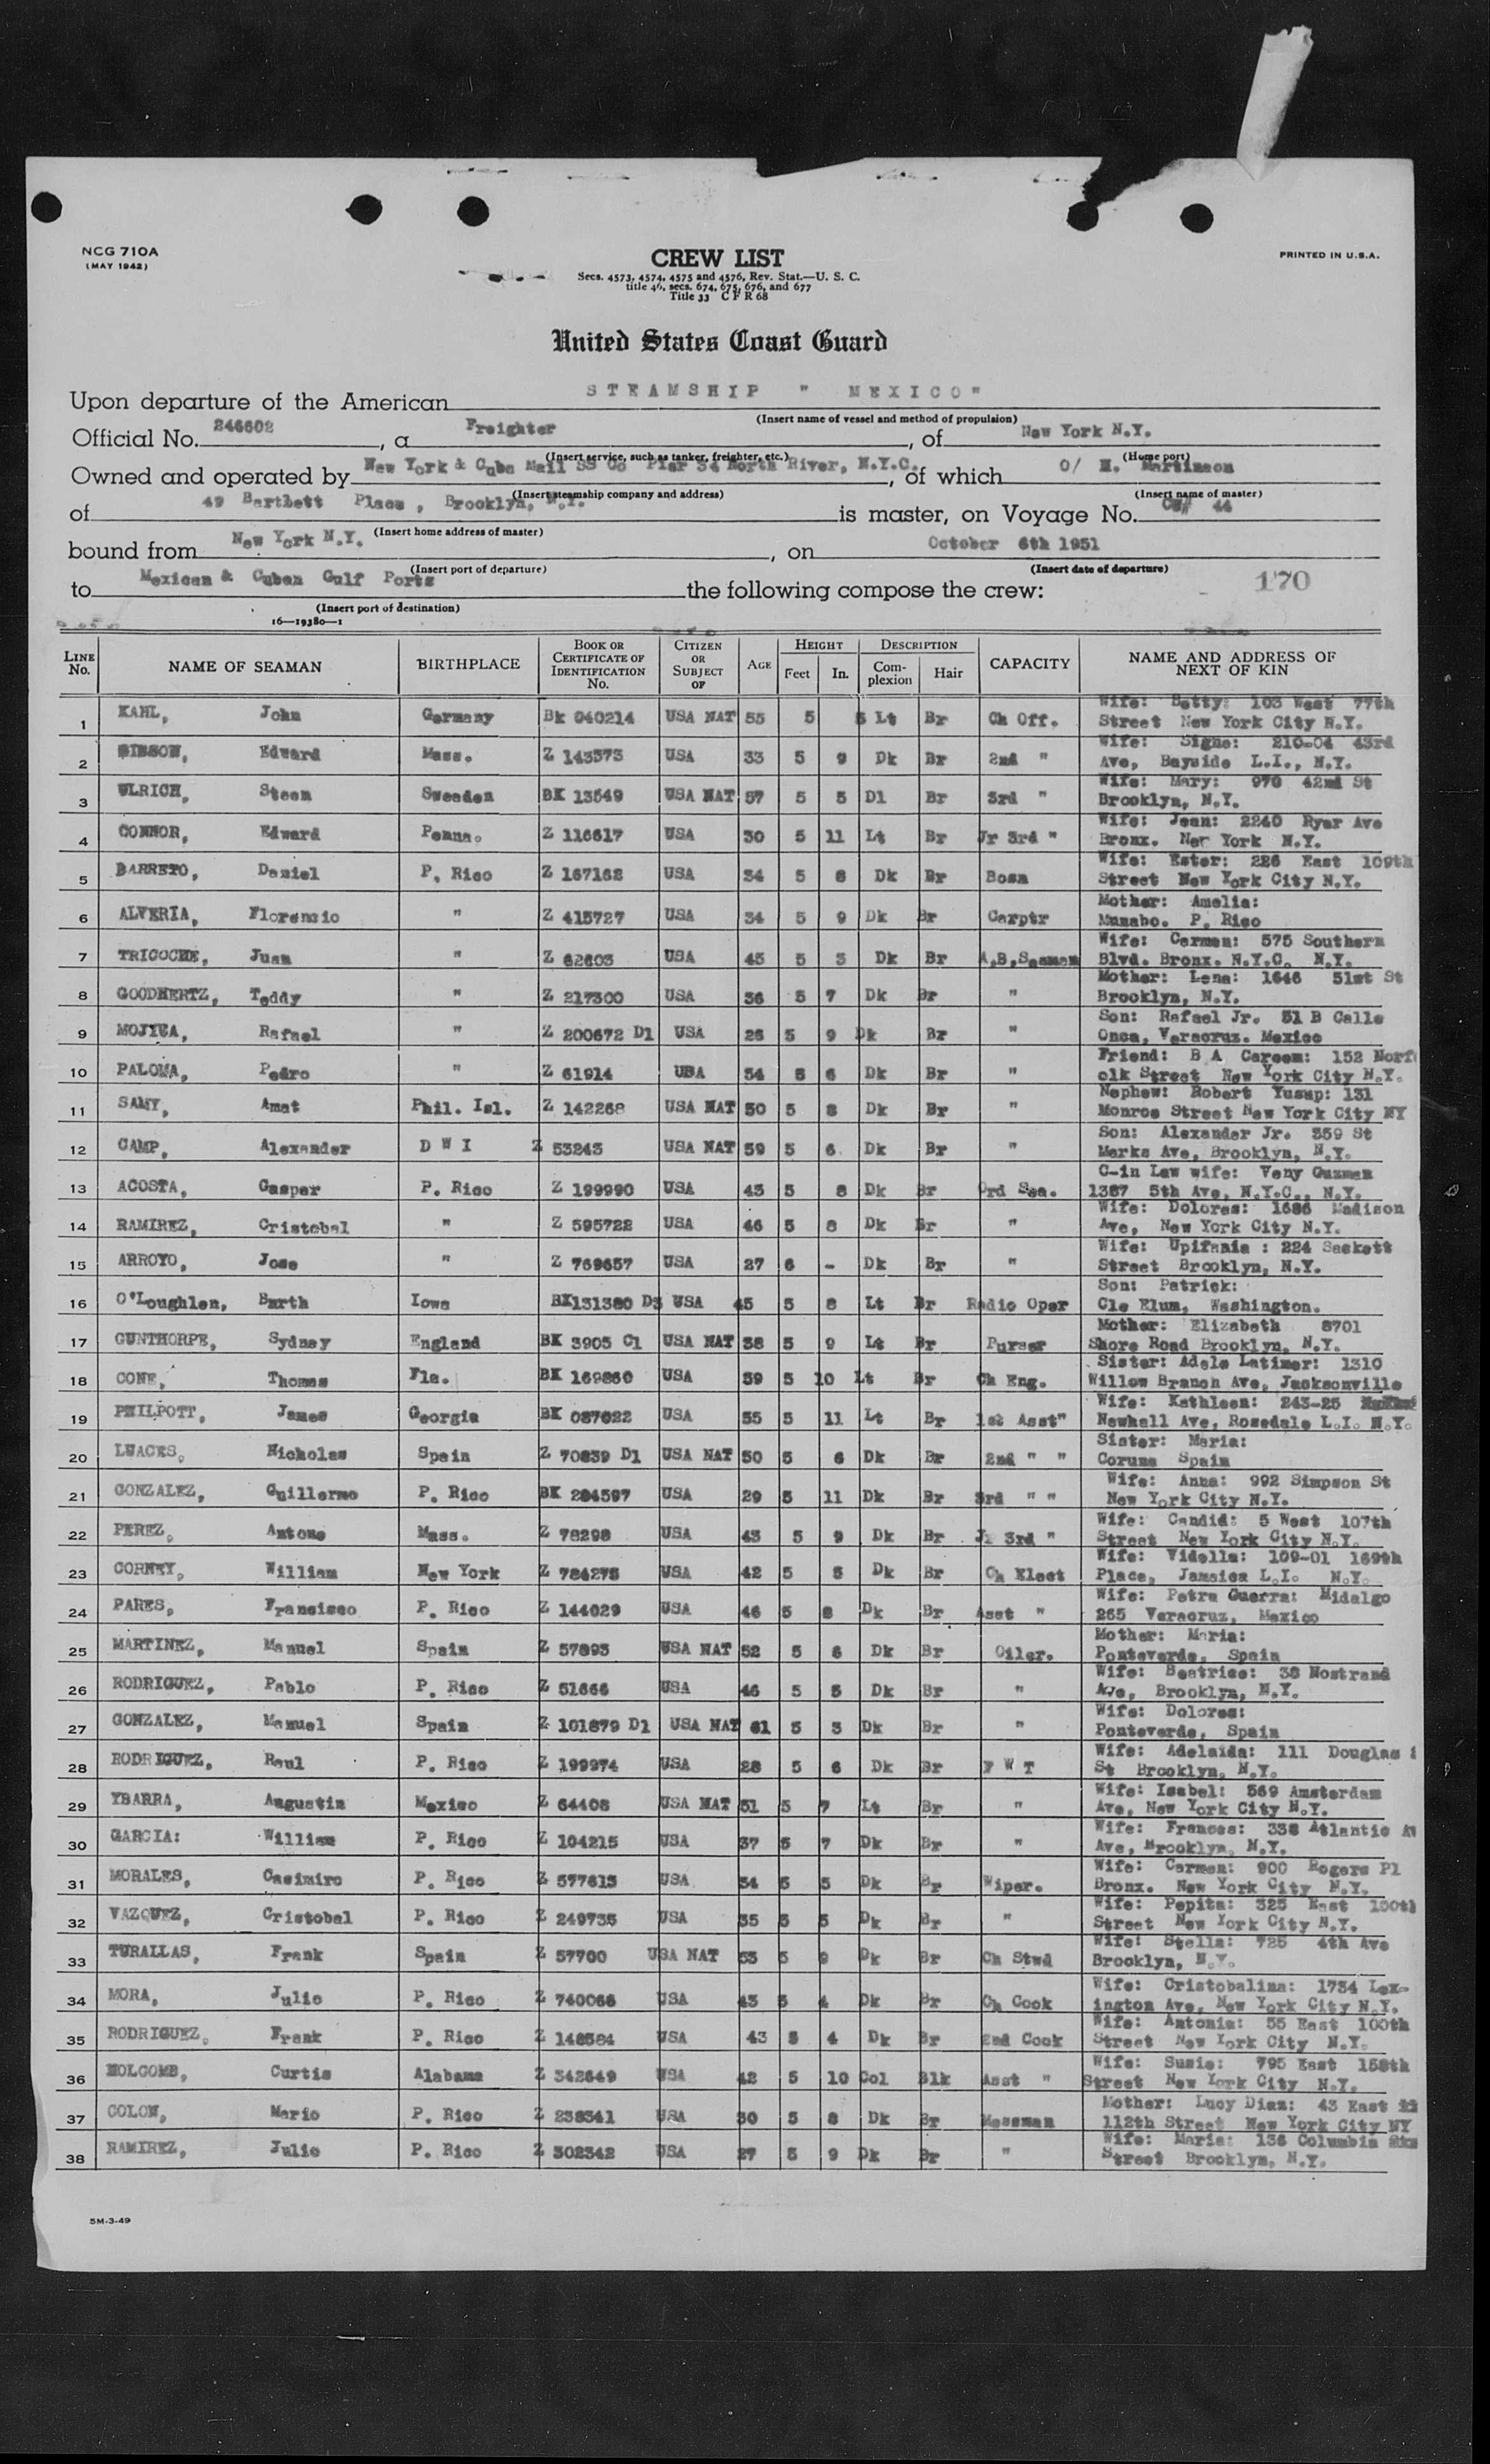 NCG 710A
(MAY 1942)
CREW LIST
PRINTED IN U.S.A.
Secs. 4573, 4574, 4575 and 4576, Rev. Stat.—U. S. C.
title 46, secs. 674, 675, 676, and 677
Title 33 C F R 68
United States Coast Guard
Upon departure of the American STEAMSHIP " MEXICO"
(Insert name of vessel and method of propulsion)
Official No. 246602, a Freighter, of New York N.Y.
(Insert service, such as tanker, freighter, etc.) (Home port)
Owned and operated by New York & Cuba Mail SS Co Pier 34 North River, N.Y.C., of which O/ M. Martinson
(Insert steamship company and address) (Insert name of master)
of 49 Bartlett Place, Brooklyn, N.Y. is master, on Voyage No. 44
(Insert home address of master)
bound from New York N.Y., on October 6th 1951
(Insert port of departure) (Insert date of departure)
to Mexican & Cuban Gulf Ports the following compose the crew: 170
(Insert port of destination)
16—19380—1
LINE No. NAME OF SEAMAN BIRTHPLACE BOOK OR CERTIFICATE OF IDENTIFICATION No. CITIZEN OR SUBJECT OF AGE HEIGHT Feet In. DESCRIPTION Complexion Hair CAPACITY NAME AND ADDRESS OF NEXT OF KIN
1 KAHL, John Germany Bk 040214 USA NAT 55 5 Lt Br Ch Off. Wife: Betty: 103 West 77th
Street New York City N.Y.
2 GIBSON, Edward Mass. Z 143573 USA 33 5 9 Dk Br 2nd " Wife: Signe: 210-04 43rd
Ave, Bayside L.I., N.Y.
3 ULRICH, Steen Sweaden BK 13549 USA NAT 57 5 5 Dl Br 3rd " Wife: Mary: 970 42nd St
Brooklyn, N.Y.
4 CONNOR, Edward Penna. Z 116617 USA 30 5 11 Lt Br Jr 3rd " Wife: Jean: 2240 Ryer Ave
Bronx. New York N.Y.
5 BARRETO, Daniel P. Rico Z 167162 USA 34 5 8 Dk Br Bosn Wife: Ester: 226 East 109th
Street New York City N.Y.
6 ALVERIA, Florencio " Z 415727 USA 34 5 9 Dk Br Carptr Mother: Amelia:
Munabo. P. Rico
7 TRICOCHE, Juan " Z 62603 USA 45 5 3 Dk Br A,B,Seaman Wife: Carmen: 575 Southern
Blvd. Bronx. N.Y.C. N.Y.
8 GOODHERTZ, Teddy " Z 217300 USA 36 5 7 Dk Br " Mother: Lena: 1646 51st St
Brooklyn, N.Y.
9 MOJICA, Rafael " Z 200672 D1 USA 26 5 9 Dk Br " Son: Rafael Jr. 51 B Calle
Onca, Veracruz. Mexico
10 PALOMA, Pedro " Z 61914 USA 54 5 6 Dk Br " Friend: B A Careem: 152 Norf
olk Street New York City N.Y.
11 SAMY, Amat Phil. Isl. Z 142268 USA NAT 50 5 8 Dk Br " Nephew: Robert Yusup: 131
Monroe Street New York City NY
12 CAMP, Alexander D W I Z 53243 USA NAT 59 5 6 Dk Br " Son: Alexander Jr. 359 St
Marks Ave, Brooklyn, N.Y.
13 ACOSTA, Gasper P. Rico Z 199990 USA 43 5 8 Dk Br Ord Sea. C-in Law wife: Veny Guzman
1387 5th Ave, N.Y.C., N.Y.
14 RAMIREZ, Cristobal " Z 595722 USA 46 5 8 Dk Br " Wife: Dolores: 1686 Madison
Ave, New York City N.Y.
15 ARROYO, Jose " Z 769657 USA 27 6 - Dk Br " Wife: Upifania : 224 Sackett
Street Brooklyn, N.Y.
16 O'Loughlen, Barth Iowa BK131380 D3 USA 45 5 8 Lt Br Radio Oper Son: Patrick:
Cle Elum, Washington.
17 GUNTHORPE, Sydney England BK 3905 C1 USA NAT 38 5 9 Lt Br Purser Mother: Elizabeth 8701
Shore Road Brooklyn, N.Y.
18 CONE, Thomas Fla. BK 169860 USA 59 5 10 Lt Br Ch Eng. Sister: Adele Latimer: 1310
Willow Branch Ave, Jacksonville
19 PHILPOTT, James Georgia BK 087622 USA 55 5 11 Lt Br 1st Asst" Wife: Kathleen: 243-25
Newhall Ave, Rosedale L.I. N.Y.
20 LUACES, Nicholas Spain Z 70839 D1 USA NAT 50 5 6 Dk Br 2nd " " Sister: Maria:
Coruna Spain
21 GONZALEZ, Guillermo P. Rico BK 284597 USA 29 5 11 Dk Br 3rd " " Wife: Anna: 992 Simpson St
New York City N.Y.
22 PEREZ, Antone Mass. Z 78298 USA 43 5 9 Dk Br Jr 3rd " Wife: Candid: 5 West 107th
Street New York City N.Y.
23 CORNEY, William New York Z 784275 USA 42 5 5 Dk Br Ch Elect Wife: Vidella: 109-01 169th
Place, Jamaica L.I. N.Y.
24 PARES, Francisco P. Rico Z 144029 USA 46 5 8 Dk Br Asst " Wife: Petra Guerra: Hidalgo
265 Veracruz, Mexico
25 MARTINEZ, Manuel Spain Z 57893 USA NAT 52 5 6 Dk Br Oiler. Mother: Maria:
Ponteverde, Spain
26 RODRIGUEZ, Pablo P. Rico Z 51666 USA 46 5 5 Dk Br " Wife: Beatrice: 38 Nostrand
Ave, Brooklyn, N.Y.
27 GONZALEZ, Manuel Spain Z 101879 D1 USA NAT 61 5 3 Dk Br " Wife: Dolores:
Ponteverde, Spain
28 RODRIGUEZ, Raul P. Rico Z 199974 USA 28 5 6 Dk Br F W T Wife: Adelaida: 111 Douglas
St Brooklyn, N.Y.
29 YBARRA, Augustin Mexico Z 64408 USA NAT 51 5 7 Lt Br " Wife: Isabel: 569 Amsterdam
Ave, New York City N.Y.
30 GARCIA: William P. Rico Z 104215 USA 37 5 7 Dk Br " Wife: Frances: 338 Atlantic Av
Ave, Brooklyn, N.Y.
31 MORALES, Casimiro P. Rico Z 577613 USA 34 5 5 Dk Br Wiper. Wife: Carmen: 900 Rogers Pl
Bronx. New York City N.Y.
32 VAZQUEZ, Cristobal P. Rico Z 249735 USA 35 5 5 Dk Br " Wife: Pepita: 325 East 100th
Street New York City N.Y.
33 TURALLAS, Frank Spain Z 57700 USA NAT 53 5 9 Dk Br Ch Stwd Wife: Stella: 725 4th Ave
Brooklyn, N.Y.
34 MORA, Julio P. Rico Z 740066 USA 43 5 4 Dk Br Ch Cook Wife: Cristobalina: 1734 Lex-
ington Ave, New York City N.Y.
35 RODRIGUEZ, Frank P. Rico Z 148584 USA 43 5 4 Dk Br 2nd Cook Wife: Antonia: 55 East 100th
Street New York City N.Y.
36 HOLCOMB, Curtis Alabama Z 342649 USA 42 5 10 Col Blk Asst " Wife: Susie: 795 East 158th
Street New York City N.Y.
37 COLON, Mario P. Rico Z 238341 USA 30 5 8 Dk Br Messman Mother: Lucy Diaz: 43 East
112th Street New York City NY
38 RAMIREZ, Julio P. Rico Z 302342 USA 27 5 9 Dk Br " Wife: Maria: 136 Columbia
Street Brooklyn, N.Y.
5M-3-49